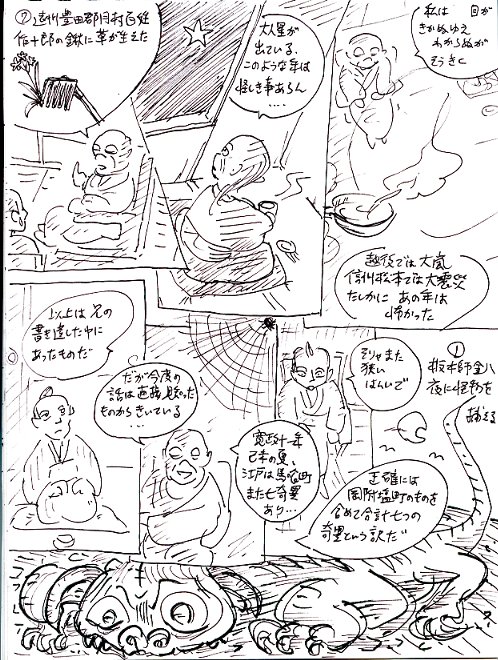 私は目が
きかぬゆえ
わからぬが
そうきく
大星が
出ている、
このような年は
怪しき事あらん
…
⑦遠州豊田郡月村百姓
作十郎の鍬に草が生えた
越後では大嵐
信州松本では大震災
たしかにあの年は
怖かった
①
板木師金八
夜に怪物を
捕える
そりゃまた
狭い
はんいで
正確には
岡附塩町のものを
含めて合計七つの
奇異という訳だ
寛政十一年
己未の夏、
江戸は馬喰町
また七奇異
あり…
だが今度の
話は直接
ものからきいている
…
以上は兄の
書き遺した中に
あったものだ